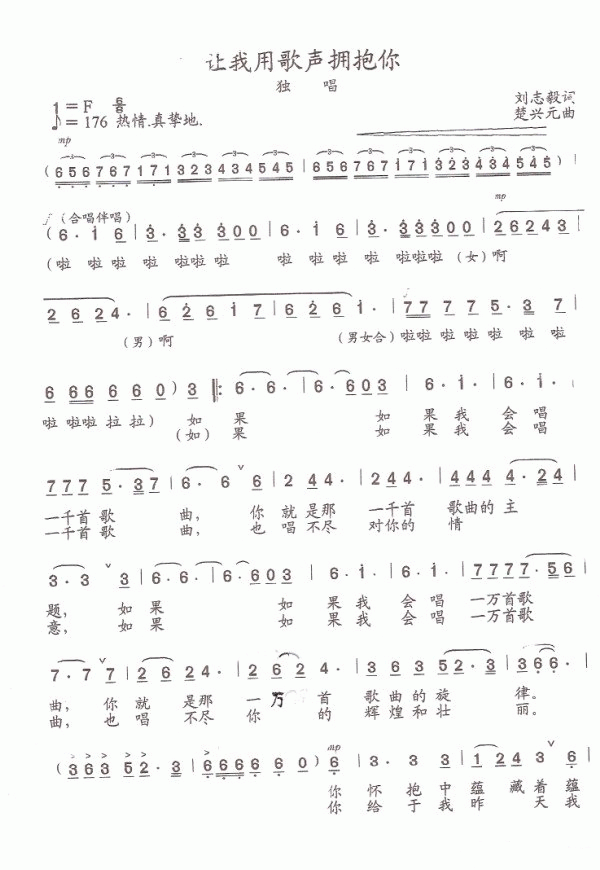 让我用歌声拥抱你
独 唱
1=F 6/8
♪=176 热情.真挚地.
刘志毅词
楚兴元曲
mp
(656 767 171 323 434 545 | 656 767 171 323 434 545)|
mp
f (合唱伴唱)
(6·i 6 | 3·3 3 3 0 0 | 6·i 6 | 3·3 3 3 3 0 0 | 2 6 2 4 3 |
(啦 啦啦 啦 啦啦 啦 啦 啦 啦 啦 啦啦啦 (女)啊
2 6 2 4· | 6 2 6 1 7 | 6 2 6 1· | 7 7 7 7 5· 3 7 |
(男)啊 (男女合)啦啦 啦 啦 啦 啦 啦
6 6 6 6 6 0) 3 |: 6·6· | 6·6 0 3 | 6·i· | 6·i· |
啦 啦啦 拉 拉) 如 果 如 果 我 会 唱
(如) 果 如 果 我 会 唱
7 7 7 5·3 7 | 6·6 ˅ 6 | 2 4 4· | 2 4 4· | 4 4 4 4·2 4 |
一千首 歌 曲, 你 就 是那 一千首 歌曲的 主
一千首 歌 曲, 也 唱 不尽 对你的 情
3·3 ˅ 3 | 6·6· | 6·6 0 3 | 6·i· | 6·i· | 7 7 7 7·5 6 |
题, 如 果 如 果 我 会 唱 一万首歌
意, 如 果 如 果 我 会 唱 一万首歌
7·7 ˅ 7 | 2 6 2 4· | 2 6 2 4· | 3 6 3 5 2·3 | 3 6 6· |
曲, 你 就 是那 一 万 首 歌 曲 的 旋 律。
曲, 也 唱 不尽 你 的 辉 煌 和 壮 丽。
mp
(3 6 3 5 2·3 | 6 6 6 6 6 0) 6 | 3·3 3 | 1 2 4 3 ˅ 6 |
你 怀 抱 中 蕴 藏 着 蕴
你 给 于 我 昨 天 我